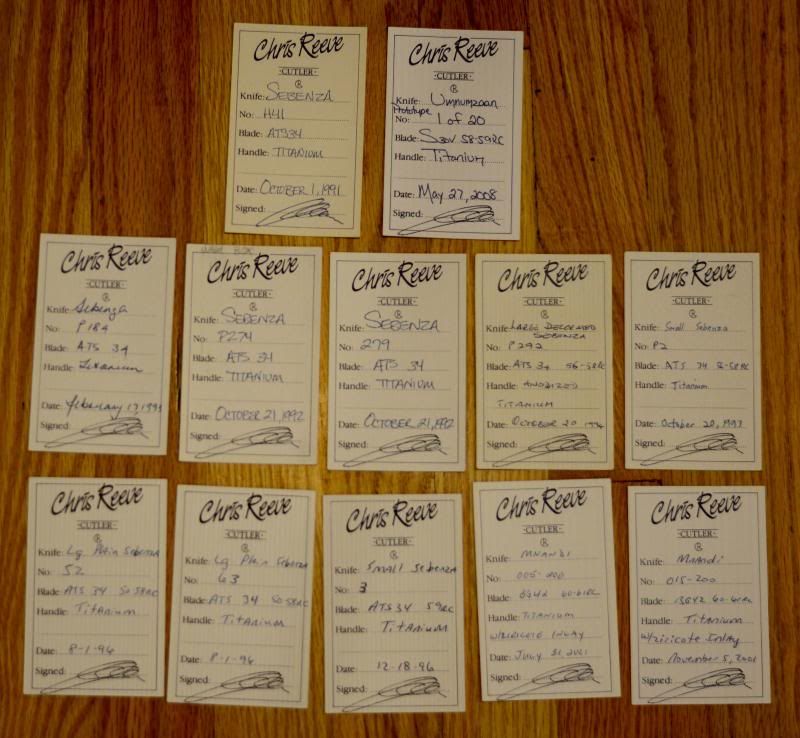 Chris Reeve
·CUTLER·
Knife: SEBENZA
No: H41
Blade: ATS34
Handle: TITANIUM
Date: OCTOBER 1, 1991
Signed:
Chris Reeve
·CUTLER·
Knife: Umnumzaan
Prototype
No: 1 of 20
Blade: S30V 58-59RC
Handle: Titanium
Date: May 27, 2008
Signed:
Chris Reeve
·CUTLER·
Knife: Sebenza
No: P184
Blade: ATS 34
Handle: Titanium
Date: February 17, 199
Signed:
Chris Reeve
·CUTLER·
Knife: SEBENZA
No: P274
Blade: ATS 34
Handle: TITANIUM
Date: OCTOBER 21, 1992
Signed:
Chris Reeve
·CUTLER·
Knife: SEBENZA
No: 279
Blade: ATS 34
Handle: TITANIUM
Date: OCTOBER 21, 1992
Signed:
Chris Reeve
·CUTLER·
Knife: LARGE DECORATED
SEBENZA
No: P292
Blade: ATS 34 56-58RC
Handle: ANODIZED
TITANIUM
Date: OCTOBER 20 1994
Signed:
Chris Reeve
·CUTLER·
Knife: Small Sebenza
No: P2
Blade: ATS 34 56-58RC
Handle: Titanium
Date: October 20, 1993
Signed:
Chris Reeve
·CUTLER·
Knife: Lg. Plain Sebenza
No: 52
Blade: ATS 34 50-58RC
Handle: Titanium
Date: 8-1-96
Signed:
Chris Reeve
·CUTLER·
Knife: Lg Plain Sebenza
No: 63
Blade: ATS 34 50-58RC
Handle: Titanium
Date: 8-1-96
Signed:
Chris Reeve
·CUTLER·
Knife: SMALL Sebenza
No: 3
Blade: ATS34 59RC
Handle: Titanium
Date: 12-18-96
Signed:
Chris Reeve
·CUTLER·
Knife: MNANDI
No: 005-200
Blade: BG42 60-61RC
Handle: TITANIUM
W/ZIRICOTE INLAY
Date: JULY 31 2001
Signed:
Chris Reeve
·CUTLER·
Knife: Mnandi
No: 015-200
Blade: BG42 60-61RC
Handle: Titanium
w/ziricote Inlay
Date: November 5, 2001
Signed: